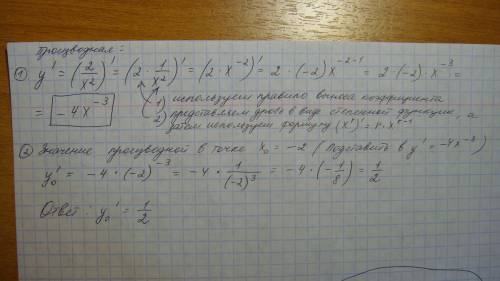 производная:
① y' = (2/x²)' = (2 · 1/x²)' = (2 · x⁻²)' = 2 · (-2)x⁻²⁻¹ = 2 · (-2) · x⁻³ =
= -4x⁻³
1) используем правило выноса коэффициента
2) представляем дробь в вид степенной функции, а
затем используем формулу (xʳ)' = r · xʳ⁻¹
② Значение производной в точке x₀ = -2 (подставить в y' = -4x⁻³)
y₀' = -4 · (-2)⁻³ = -4 · 1/(-2)³ = -4 · (-1/8) = 1/2
Ответ: y₀' = 1/2